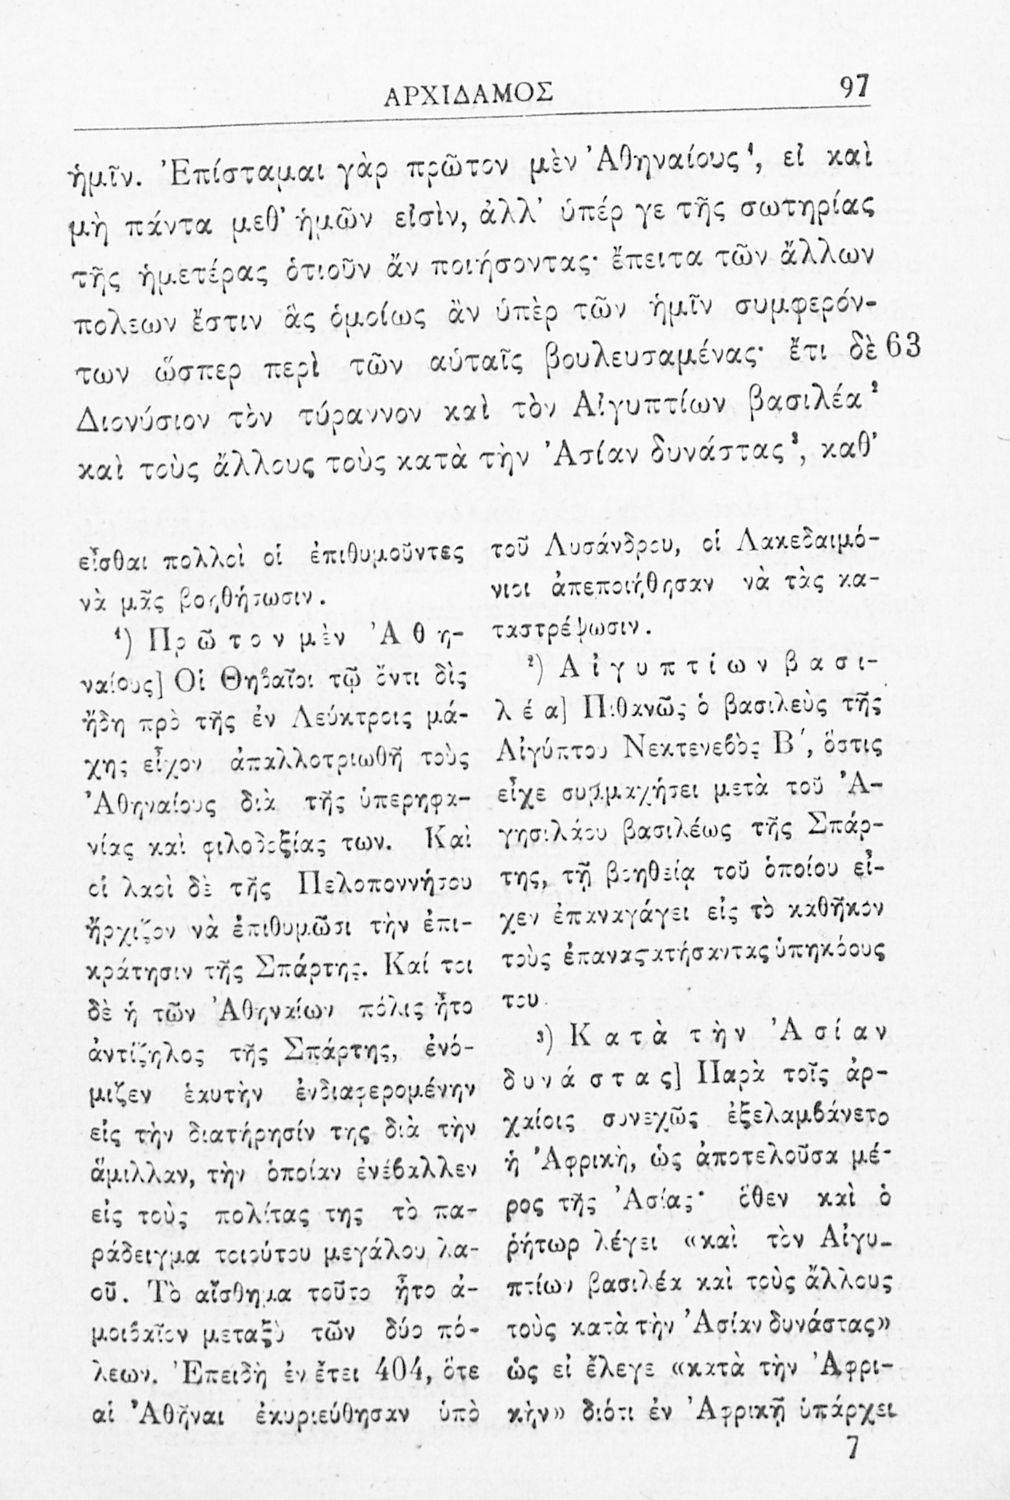 ΑΡΧΙΔΑΜΟΣ
97
ἡμῖν. Ἐπίσταμαι γὰρ πρῶτον μὲν Ἀθηναίους¹, εἰ καὶ
μὴ πάντα μεθ’ ἡμῶν εἰσὶν, ἀλλ’ ὑπέρ γε τῆς σωτηρίας
τῆς ἡμετέρας ὁτιοῦν ἄν ποιήσοντας· ἔπειτα τῶν ἄλλων
πολεων ἔστιν ἃς ὁμοίως ἂν ὑπὲρ τῶν ἡμῖν συμφερόν-
των ὥσπερ περὶ τῶν αὑταῖς βουλευσαμένας· ἔτι δὲ 63
Διονύσιον τὸν τύραννον καὶ τὸν Αἰγυπτίων βασιλέα²
καὶ τοὺς ἄλλους τοὺς κατὰ τὴν Ἀσίαν δυνάστας³, καθ’
εἶσθαι πολλοὶ οἱ ἐπιθυμοῦντες
νὰ μᾶς βοηθήσωσιν.
¹) Πρῶτον μὲν Ἀθη-
ναίους] Οἱ Θηβαῖοι τῷ ὄντι δὶς
ἤδη πρὸ τῆς ἐν Λεύκτροις μά-
χης εἶχον ἀπαλλοτριωθῆ τοὺς
Ἀθηναίους διὰ τῆς ὑπερηφα-
νίας καὶ φιλοδοξίας των. Καὶ
οἱ λαοὶ δὲ τῆς Πελοποννήσου
ἤρχιζον νὰ ἐπιθυμῶσι τὴν ἐπι-
κράτησιν τῆς Σπάρτης. Καί τοι
δὲ ἡ τῶν Ἀθηναίων πόλις ἦτο
ἀντίζηλος τῆς Σπάρτης, ἐνό-
μιζεν ἑαυτὴν ἐνδιαφερομένην
εἰς τὴν διατήρησίν της διὰ τὴν
ἅμιλλαν, τὴν ὁποίαν ἐνέβαλλεν
εἰς τοὺς πολίτας της τὸ πα-
ράδειγμα τοιούτου μεγάλου λα-
οῦ. Τὸ αἴσθημα τοῦτο ἦτο ἀ-
μοιβαῖον μεταξὺ τῶν δύο πό-
λεων. Ἐπειδὴ ἐν ἔτει 404, ὅτε
αἱ Ἀθῆναι ἐκυριεύθησαν ὑπὸ
τοῦ Λυσάνδρου, οἱ Λακεδαιμό-
νιοι ἀπεποιήθησαν νὰ τὰς κα-
ταστρέψωσιν.
²) Αἰγυπτίων βασι-
λέα] Πιθανῶς ὁ βασιλεὺς τῆς
Αἰγύπτου Νεκτενεβὸς Β΄, ὅστις
εἶχε συμμαχήσει μετὰ τοῦ Ἀ-
γησιλάου βασιλέως τῆς Σπάρ-
της, τῇ βοηθείᾳ τοῦ ὁποίου εἶ-
χεν ἐπαναγάγει εἰς τὸ καθῆκον
τοὺς ἐπαναστατήσαντας ὑπηκόους
του
³) Κατὰ τὴν Ἀσίαν
δυνάστας] Παρὰ τοῖς ἀρ-
χαίοις συνεχῶς ἐξελαμβάνετο
ἡ Ἀφρικὴ, ὡς ἀποτελοῦσα μέ-
ρος τῆς Ἀσίας· ὅθεν καὶ ὁ
ῥήτωρ λέγει «καὶ τὸν Αἰγυ-
πτίων βασιλέα καὶ τοὺς ἄλλους
τοὺς κατὰ τὴν Ἀσίαν δυνάστας»
ὡς εἰ ἔλεγε «κατὰ τὴν Ἀφρι-
κὴν» διότι ἐν Ἀφρικῇ ὑπάρχει
7